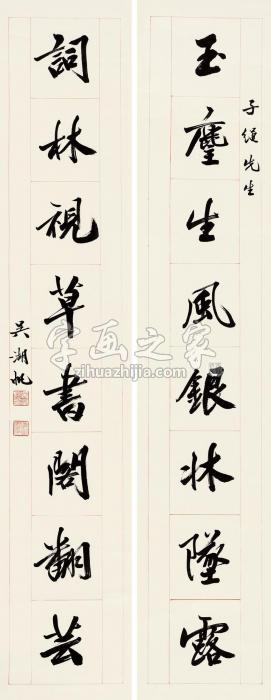 玉麈生風銀牀墜露
子先生
詞林視草書閣翻芸
吳湖帆
字画之家
zihuazhijia.com